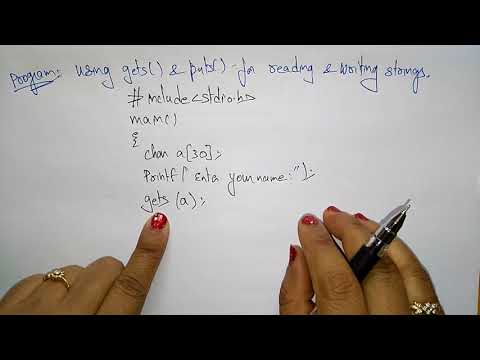 Program: Using gets() & puts() for reading & writing strings.
#include<stdio.h>
main()
{
char a[30];
Printf("Enter your name:");
gets(a);